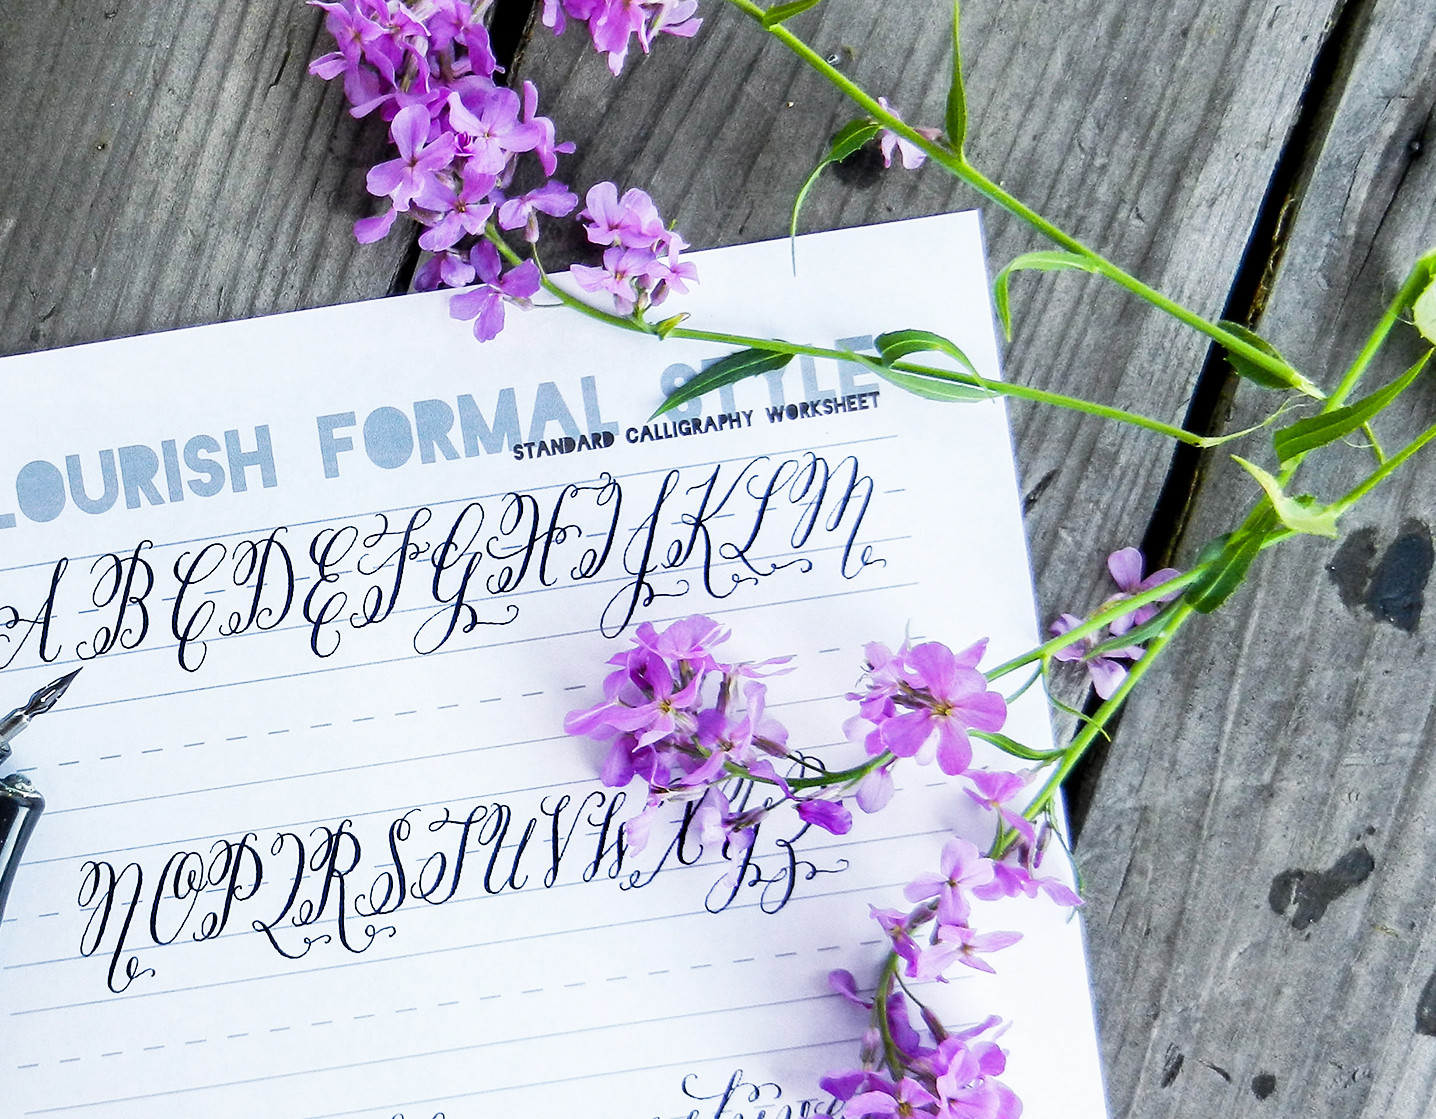 LOURISH FORMAL STYLE
STANDARD CALLIGRAPHY WORKSHEET
A B C D E F G H I J K L M
N O P Q R S T U V W X Y Z